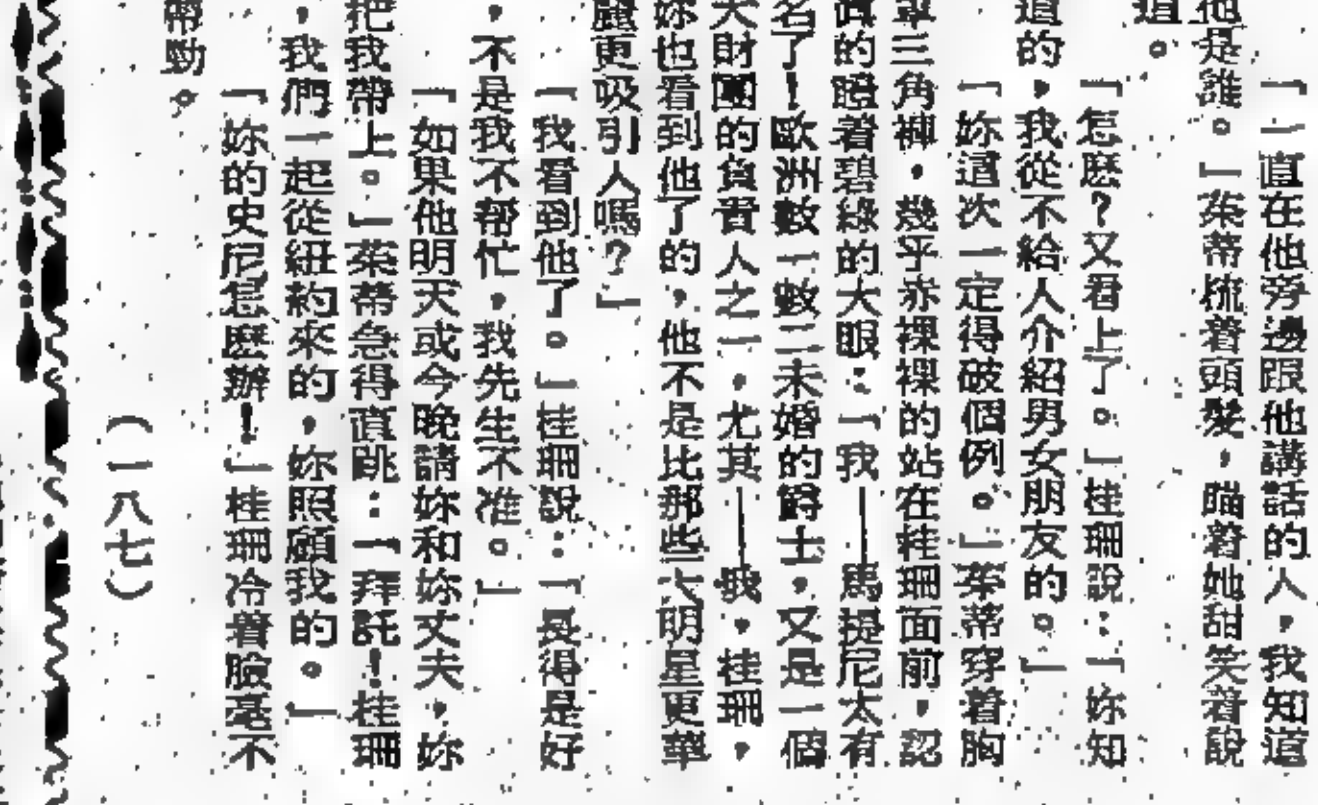 「一直在他旁邊跟他講話的人，我知道
他是誰。」茱蒂梳着頭髮，瞄着她甜笑着說
道。
「怎麽？又看上了。」桂珊說：「妳知
道的，我從不給人介紹男女朋友的。」
「妳這次一定得破個例。」茱蒂穿着胸
罩三角褲，幾乎赤裸裸的站在桂珊面前，認
眞的瞪着碧綠的大眼：「我——馬提尼太有
名了！歐洲數一數二未婚的爵士，又是一個
大財團的負責人之一，尤其——我，桂珊，
妳也看到他了的，他不是比那些大明星更華
麗更吸引人嗎？」
「我看到他了。」桂珊說：「長得是好
，不是我不帮忙，我先生不准。」
「如果他明天或今晚請妳和妳丈夫，妳
把我帶上。」茱蒂急得直跳：「拜託！桂珊
，我們一起從紐約來的，妳照顧我的。」
「妳的史尼怎麽辦！」桂珊冷着臉毫不
帶勁。
（一八七）